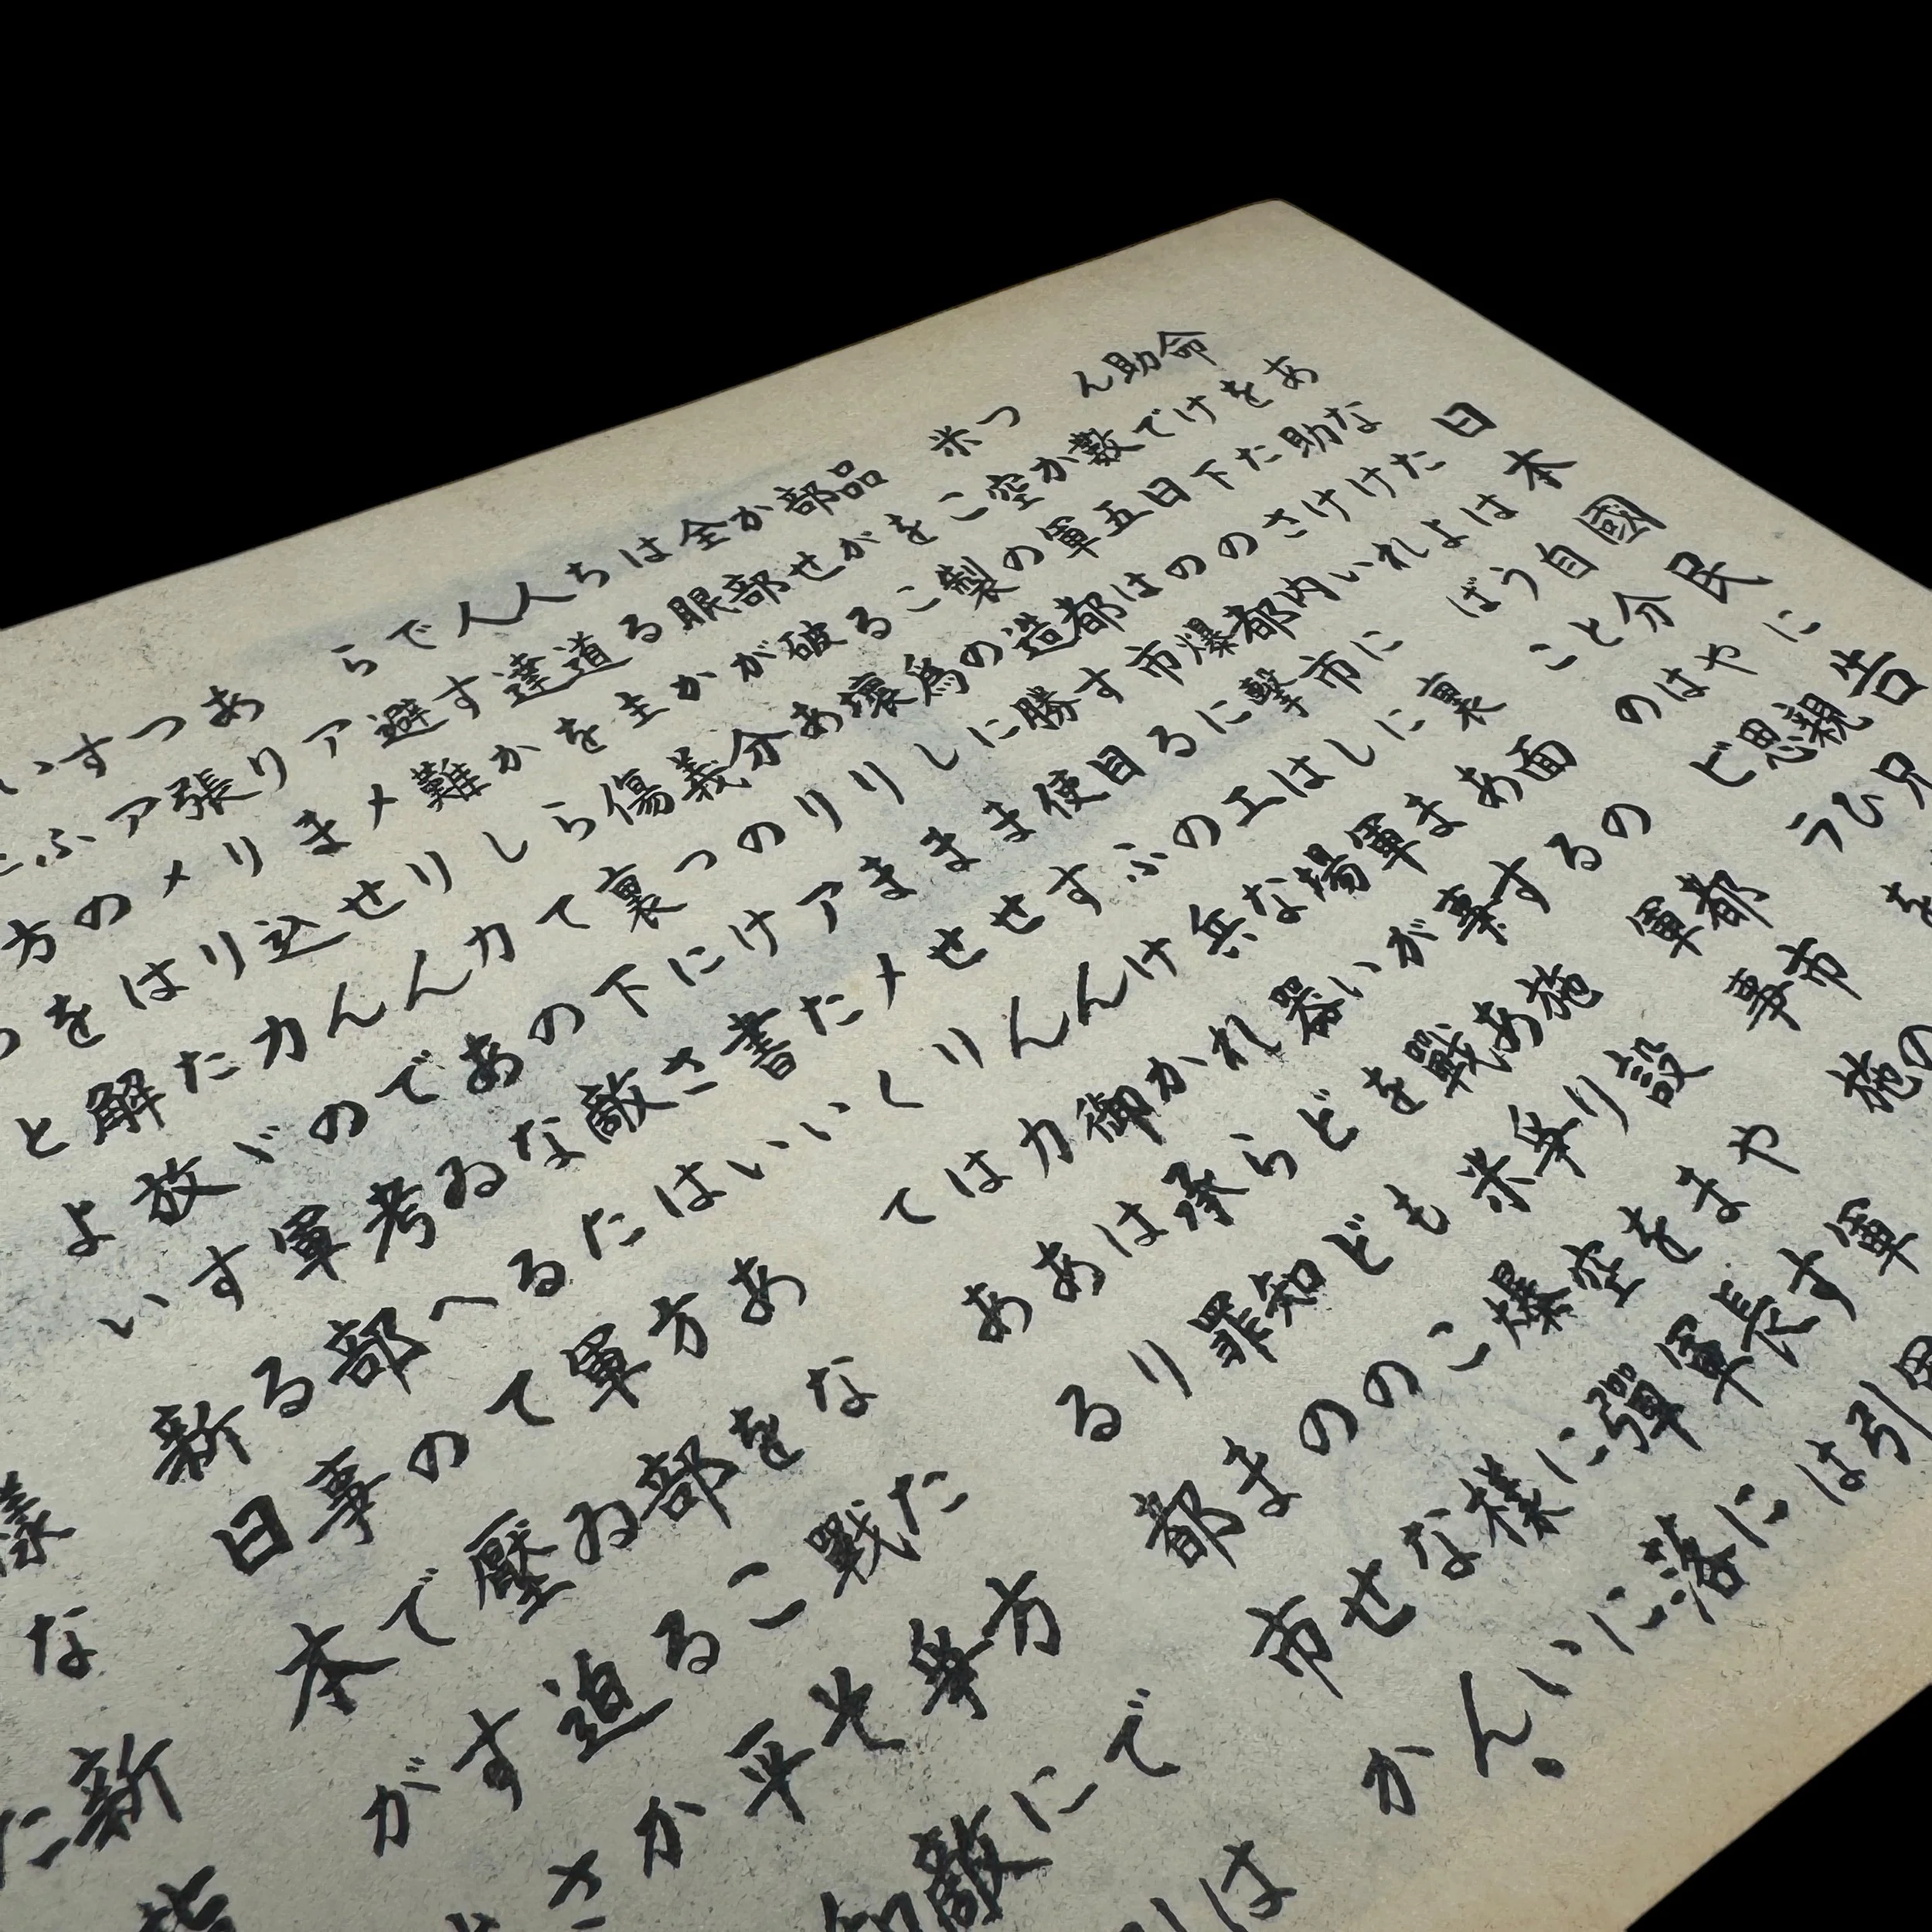 日本國民に告
あなたは自分や親兄
命を助けようとは思ひ
助けたければこのビラを
んで下さい
數日の内に裏面の都市の
つか五の都市にある軍事施
米空軍は爆撃します
この都市には軍事施設や軍
品を製造する工場があります
部がこの勝目のない戰爭を長引
かせる為に使ふ兵器を米空軍は
全部破壞しますけれども爆彈に
は眼がありませんからどこに落
ちるか分りません御承知の様に
人道主義のアメリカは罪のない
人達を傷つけたくはありません。
ですから裏に書いてある都市か
ら避難して下さい
アメリカの敵はあなた方では
ありませんあなた方を戰爭に引
つ張り込んでゐる軍部こそ敵
すアメリカの考へてゐる平和
いふのはたゞ軍部の壓迫か
方を解放する事ですさ
つとよい新日本が